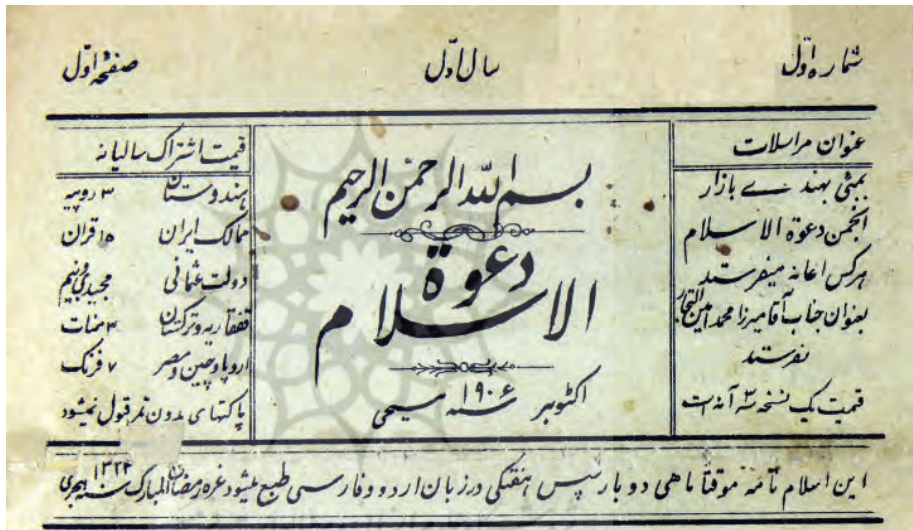 شماره اوّل
سال اوّل
صفحه اوّل
عنوان مراسلات
بمبئی بهندے بازار
انجمن دعوة الاسلام
هرکس اعانه میفرستد
بعنوان جناب آقا میرزا محمد امین التجار
بفرستد
قیمت یک نسخه سه آنه است
بسم الله الرحمن الرحیم
دعوة
الاسلام
اکتوبر سنه ۱۹۰۶ مسیحی
قیمت اشتراک سالیانه
هندوستان ۳ روپیه
ممالک ایران ۱۵ قران
دولت عثمانی مجیدی و نیم
قفقازیه و ترکستان ۳ منات
اروپا و چین و مصر ۷ فرنگ
پاکتهای بدون تمر قبول نمیشود
این اسلام نامه موقتاً ماهی دو بار سپس هفتگی در زبان اردو و فارسی طبع میشود غره رمضان المبارک سنه ۱۳۲۴ هجری